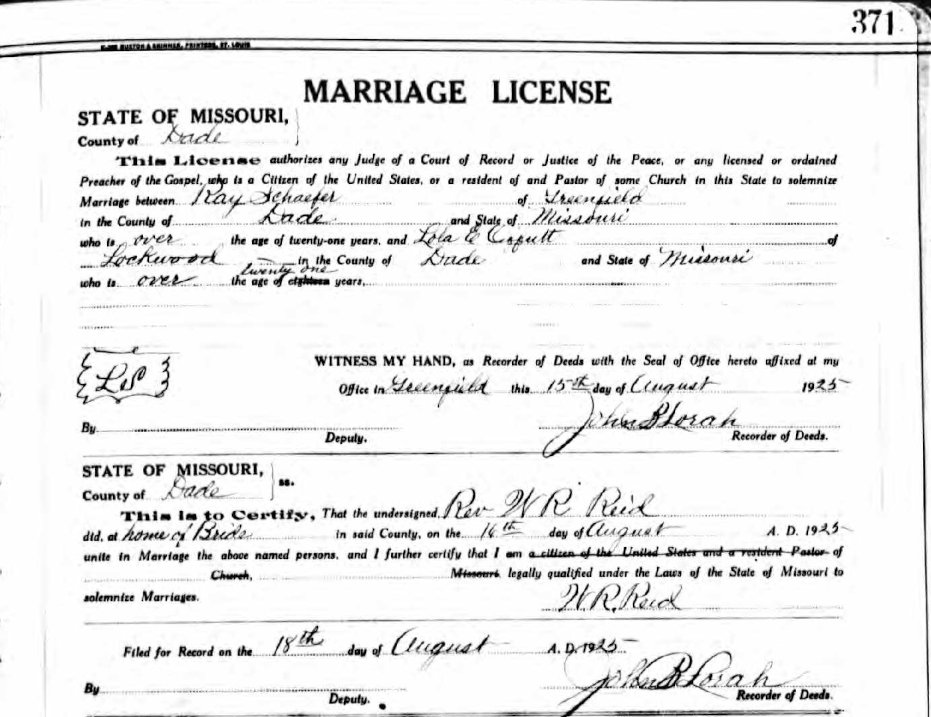 371
BUXTON & SKINNER, PRINTERS, ST. LOUIS
MARRIAGE LICENSE
STATE OF MISSOURI,
County of Dade
This License authorizes any Judge of a Court of Record or Justice of the Peace, or any licensed or ordained
Preacher of the Gospel, who is a Citizen of the United States, or a resident of and Pastor of some Church in this State to solemnize
Marriage between Ray Schaefer of Greenfield
in the County of Dade and State of Missouri
who is over the age of twenty-one years, and Lola E of
Lockwood in the County of Dade and State of Missouri
twenty one
who is over the age of eighteen years,
WITNESS MY HAND, as Recorder of Deeds with the Seal of Office hereto affixed at my
LS
Office in Greenfield this 15th day of August 1925
By John B Lorah
Deputy. Recorder of Deeds.
STATE OF MISSOURI,
County of Dade ss.
This is to Certify, That the undersigned, Rev W R Reid
did, at home of Bride in said County, on the 16th day of August A. D. 1925
unite in Marriage the above named persons, and I further certify that I am a citizen of the United States and a resident Pastor of
Church, Missouri, legally qualified under the Laws of the State of Missouri to
solemnize Marriages.
W. R. Reid
Filed for Record on the 18th day of August A. D. 1925
By John B Lorah
Deputy. Recorder of Deeds.